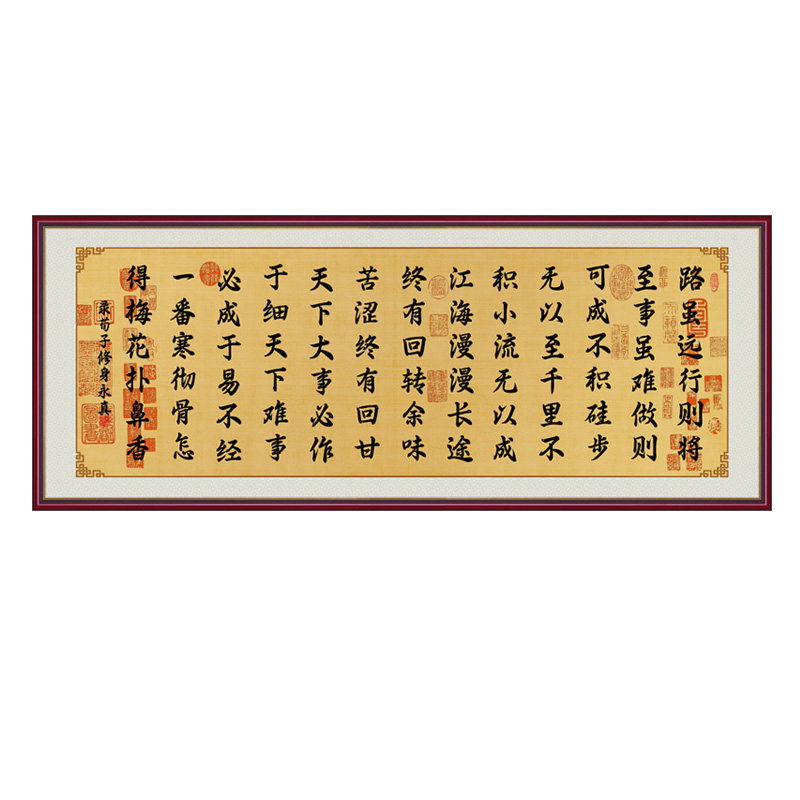 路虽远行则将
至事虽难做则
可成不积硅步
无以至千里不
积小流无以成
江海漫漫长途
终有回转余味
苦涩终有回甘
天下大事必作
于细天下难事
必成于易不经
一番寒彻骨怎
得梅花扑鼻香
录荀子修身永真